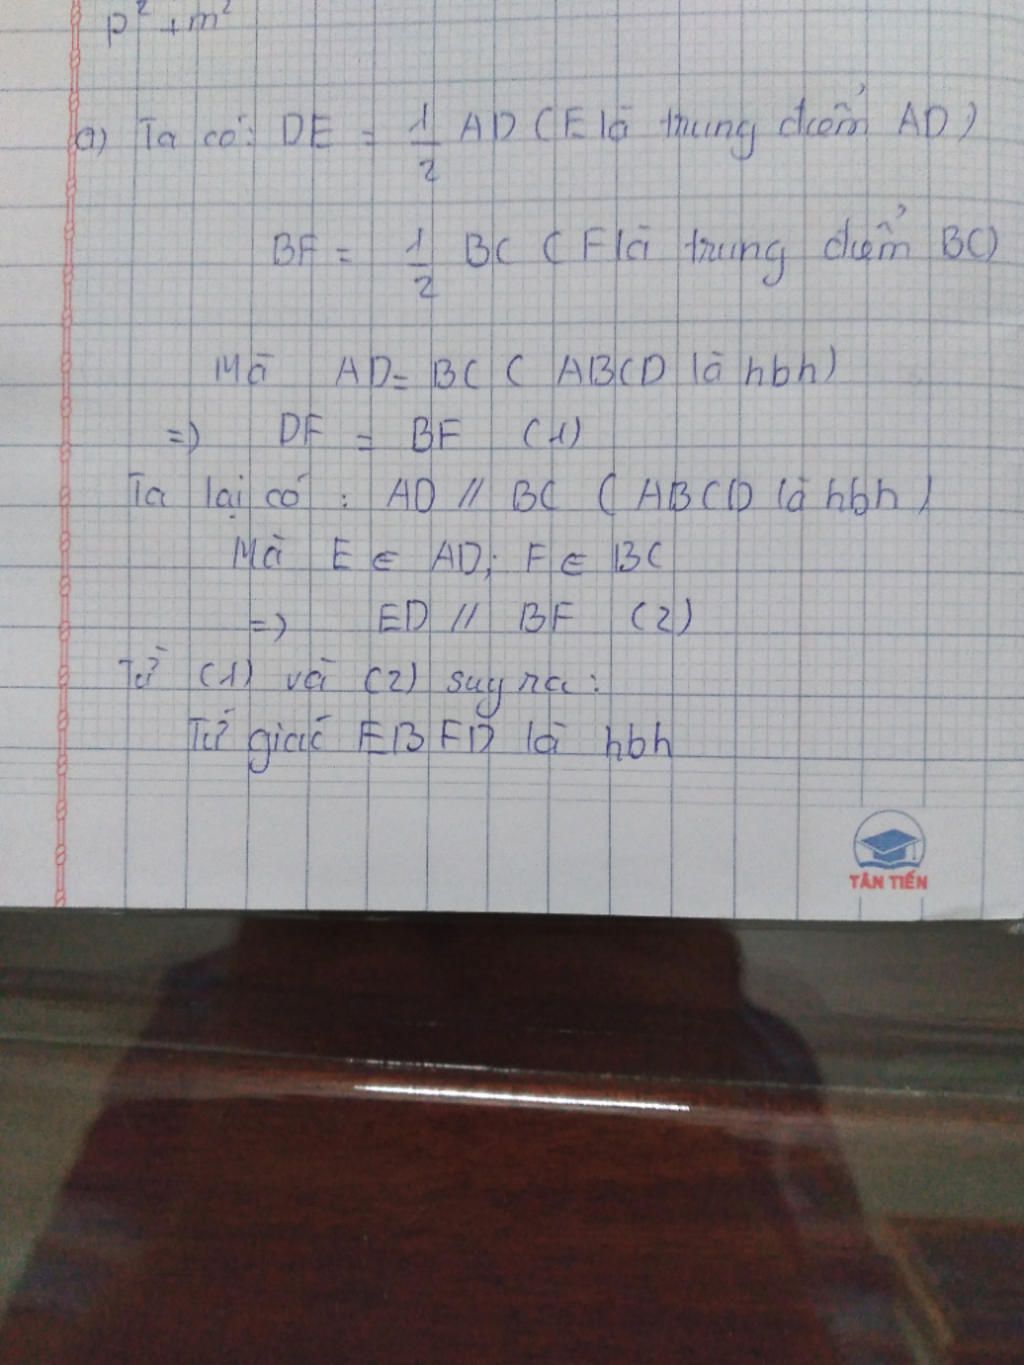 p² + m²
a) Ta có: DE = 1/2 AD (E là trung điểm AD)
BF = 1/2 BC (F là trung điểm BC)
Mà AD = BC (ABCD là hbh)
=> DF = BF (1)
Ta lại có: AD // BC (ABCD là hbh)
Mà E ∈ AD; F ∈ BC
=> ED // BF (2)
Từ (1) và (2) suy ra:
Tứ giác EBFD là hbh
TÂN TIẾN